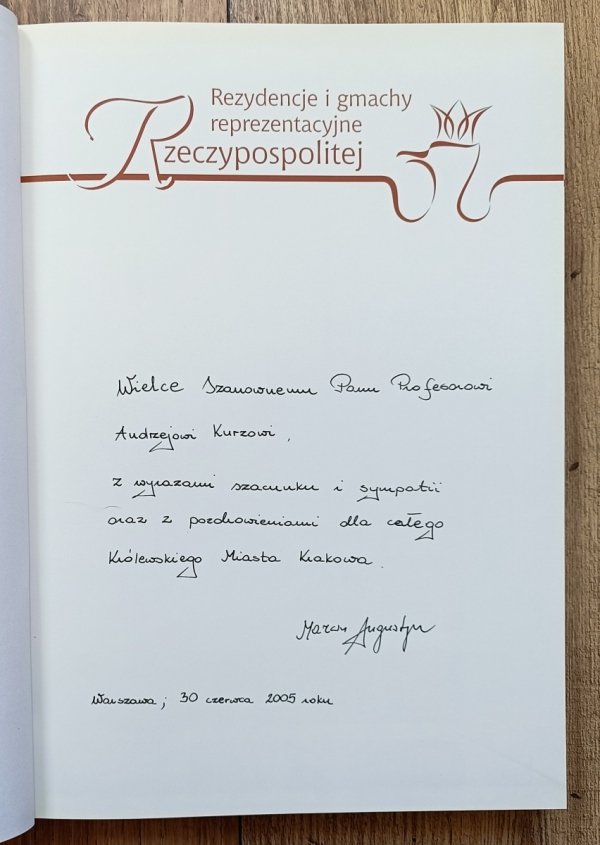 Rezydencje i gmachy
reprezentacyjne
Rzeczypospolitej
Wielce Szanownemu Panu Profesorowi
Andrzejowi Kurzowi,
z wyrazami szacunku i sympatii
oraz z pozdrowieniami dla całego
Królewskiego Miasta Krakowa.
Marcin Augustyn
Warszawa, 30 czerwca 2005 roku